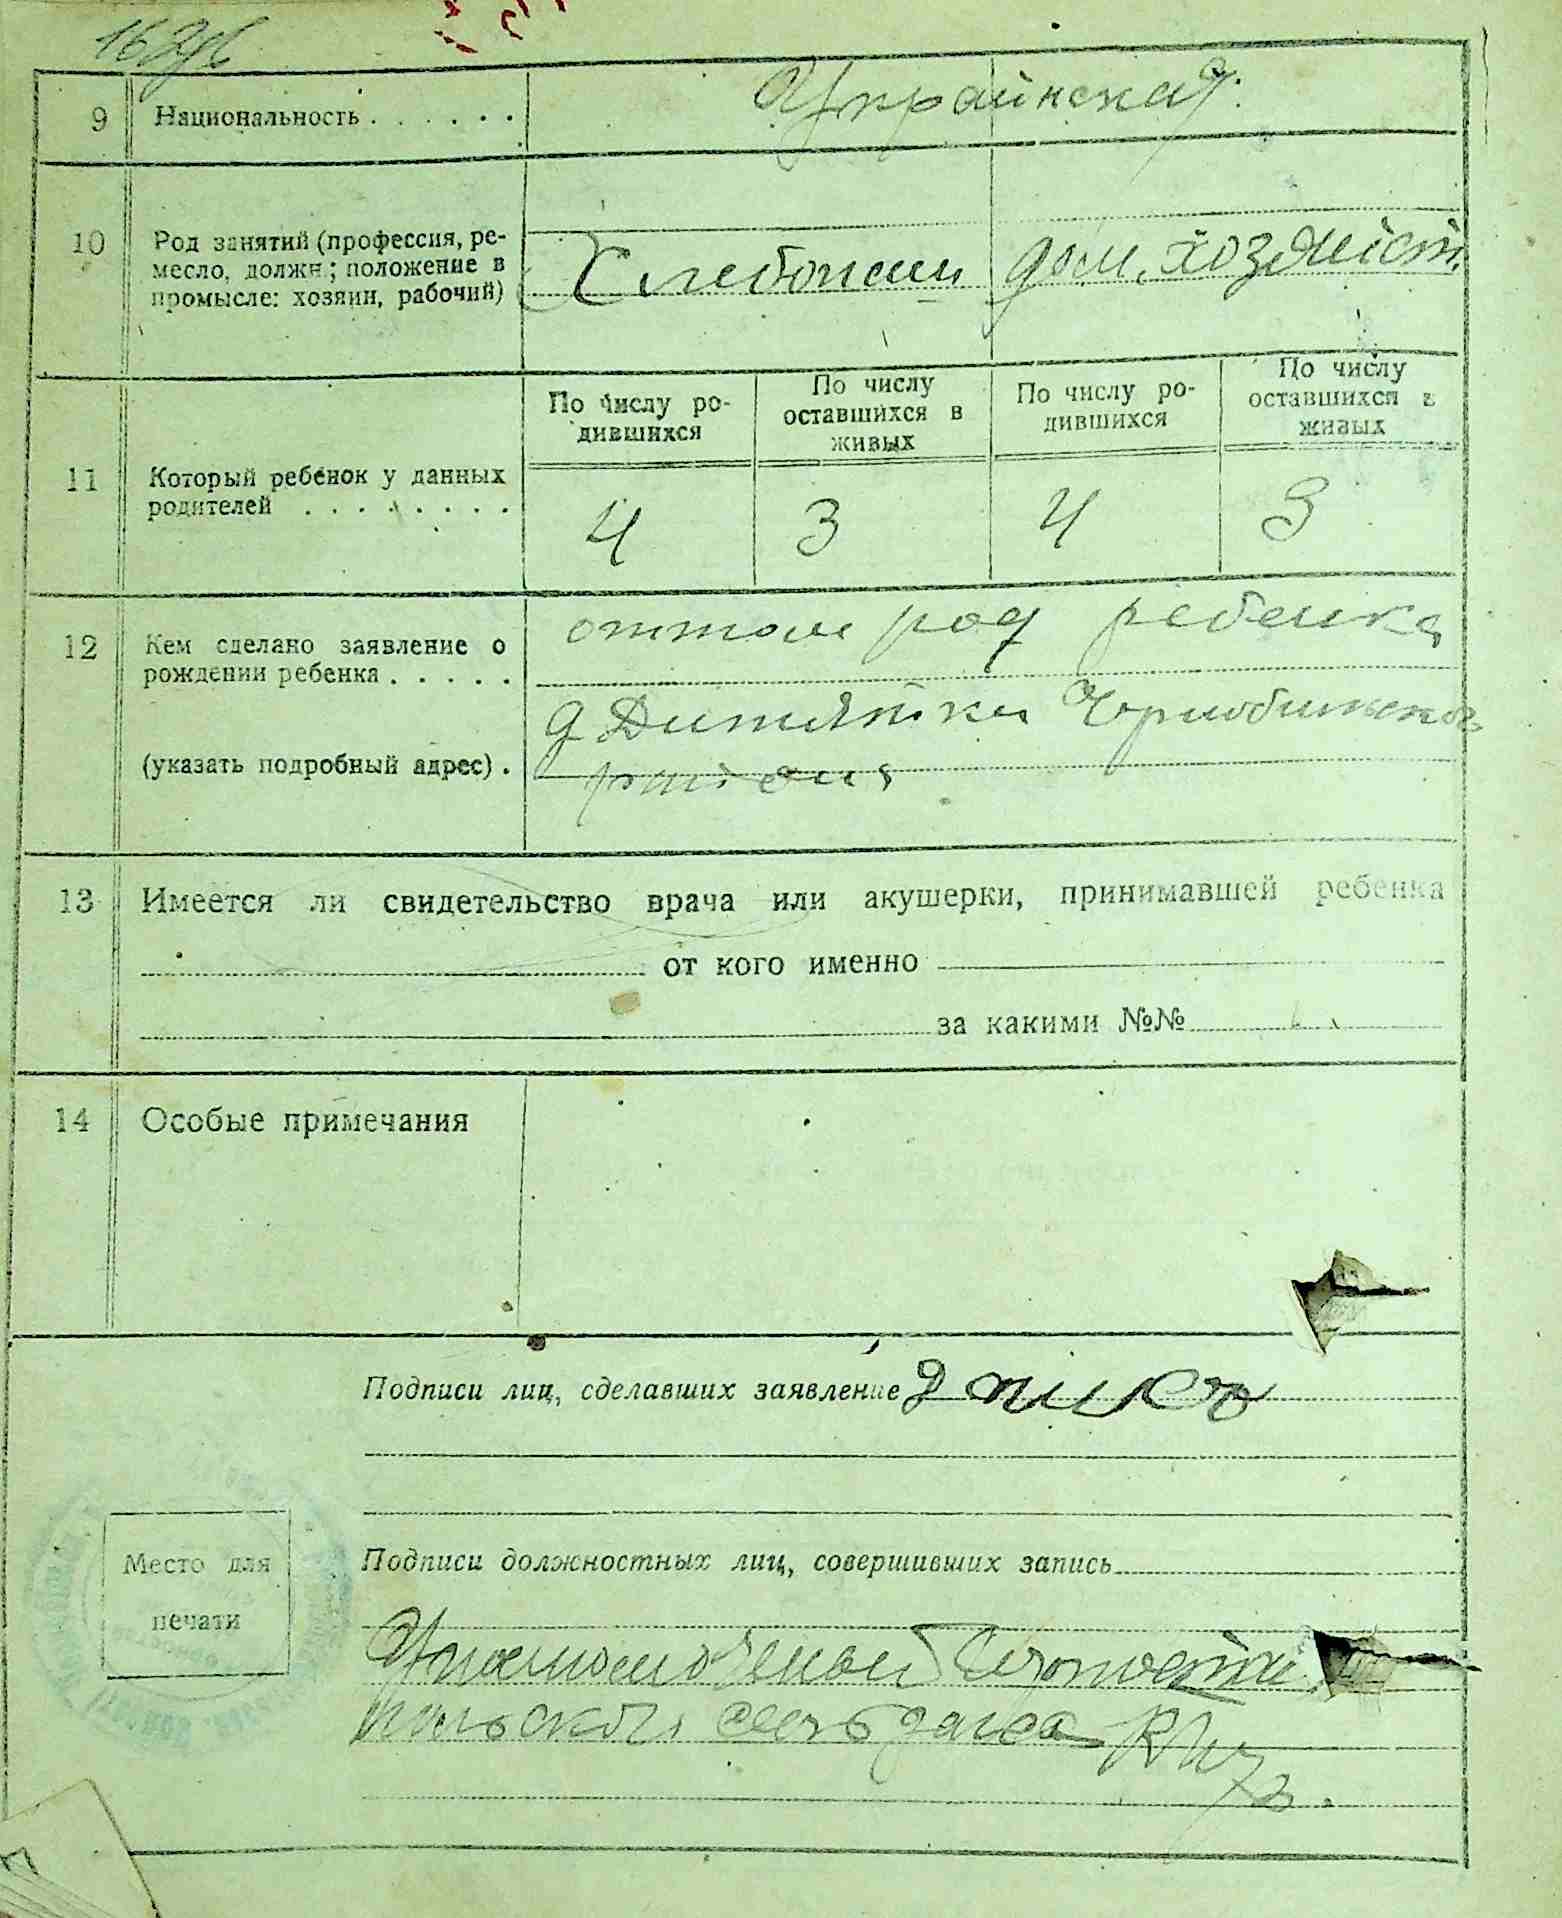 9 Национальность . . . . . . Украинская
10 Род занятий (профессия, ре-
месло, должн.; положение в
промысле: хозяин, рабочий)
Хлебопаш дом. хозяйст.
По числу ро-
дившихся
По числу
оставшихся в
живых
По числу ро-
дившихся
По числу
оставшихся в
живых
11 Который ребенок у данных
родителей . . . . . . . .
4 3 4 3
12 Кем сделано заявление о
рождении ребенка . . . . .
(указать подробный адрес) .
отцом ребенка
д Дитятки
района
13 Имеется ли свидетельство врача или акушерки, принимавшей ребенка
от кого именно
за какими №№
14 Особые примечания
Подписи лиц, сделавших заявление
Подписи должностных лиц, совершивших запись
Место для
печати